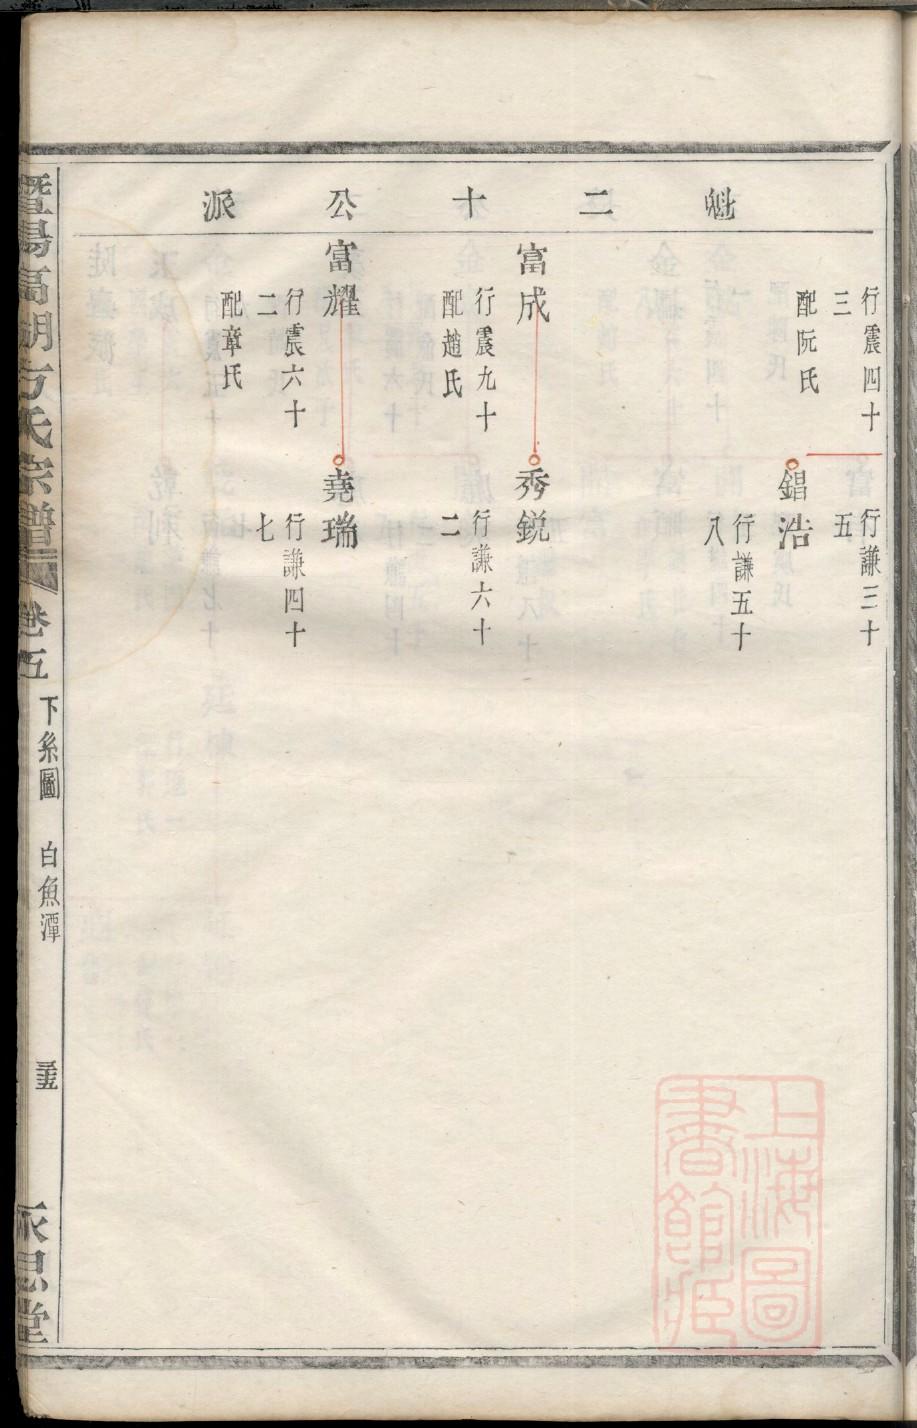 魁二十公派
行震四十
三
配阮氏
行謙三十
五
錩浩
行謙五十
八
富成
行震九十
配趙氏
秀銳
行謙六十
二
富耀
行震六十
二
配章氏
堯瑞
行謙四十
七
暨陽高湖方氏宗譜
卷五
下系圖
白魚潭
永思堂
上海圖
書館藏